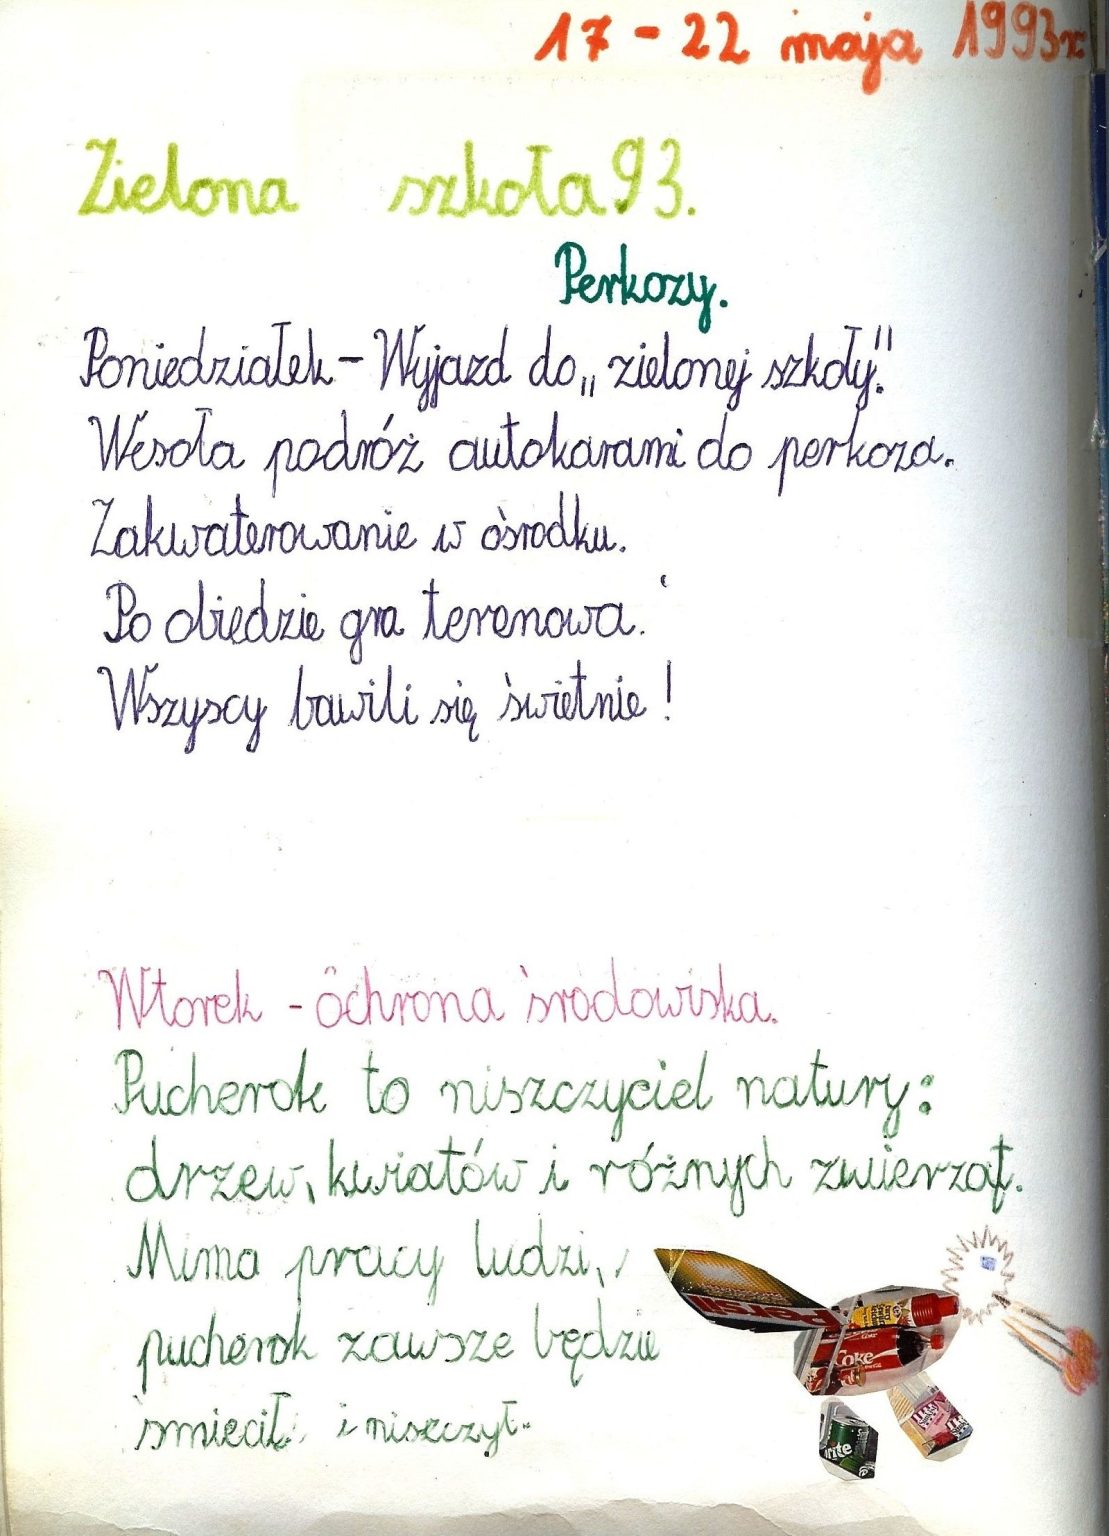 17 - 22 maja 1993r
Zielona szkoła 93.
Perkozy.
Poniedziałek – Wyjazd do „zielonej szkoły."
Wesoła podróż autokarami do perkoza.
Zakwaterowanie w ośrodku.
Po obiedzie gra terenowa.
Wszyscy bawili się świetnie!
Wtorek - ochrona środowiska.
Pucherok to niszczyciel natury:
drzew, kwiatów i różnych zwierząt.
Mimo pracy ludzi,
pucherok zawsze będzie
śmiecił i niszczył.
Persil
Coke
rite